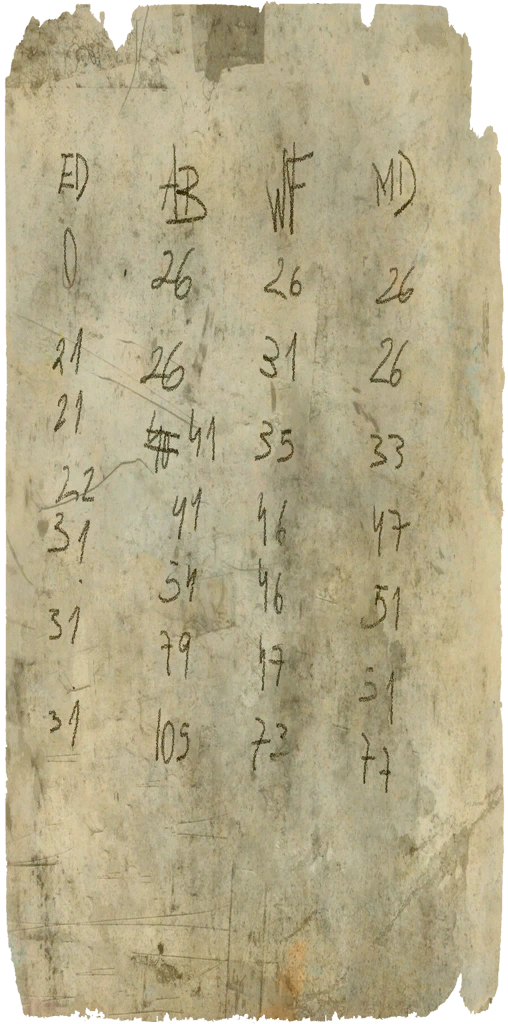 ED AB WF MD
0 26 26 26
21 26 31 26
21 41 35 33
22 41 46 47
31 51 46 51
31 79 47 51
31 105 73 77